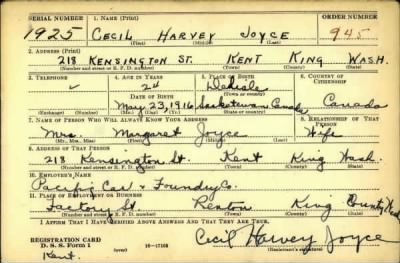 SERIAL NUMBER 1. NAME (Print) ORDER NUMBER
1925 CECIL HARVEY JOYCE 945
(First) (Middle) (Last)
2. ADDRESS (Print)
218 KENSINGTON ST. KENT KING WASH.
(Number and street or R. F. D. number) (Town) (County) (State)
3. TELEPHONE 4. AGE IN YEARS 5. PLACE OF BIRTH 6. COUNTRY OF CITIZENSHIP
24
DATE OF BIRTH
May 23, 1916 Saskatewan Canada Canada
(Mo.) (Day) (Yr.)
7. NAME OF PERSON WHO WILL ALWAYS KNOW YOUR ADDRESS 8. RELATIONSHIP OF THAT PERSON
Mrs. Margaret Joyce Wife
(Mr., Mrs., Miss) (First) (Middle) (Last)
9. ADDRESS OF THAT PERSON
218 Kensington St. Kent King Wash.
(Number and street or R. F. D. number) (Town) (County) (State)
10. EMPLOYER'S NAME
Pacific Car & Foundry Co.
11. PLACE OF EMPLOYMENT OR BUSINESS
Factory St. Renton King County Wash
(Number and street or R. F. D. number) (Town) (County) (State)
I AFFIRM THAT I HAVE VERIFIED ABOVE ANSWERS AND THAT THEY ARE TRUE.
REGISTRATION CARD
D. S. S. Form 1 (over) 16-17105 Cecil Harvey Joyce
Kent. (Registrant's signature)